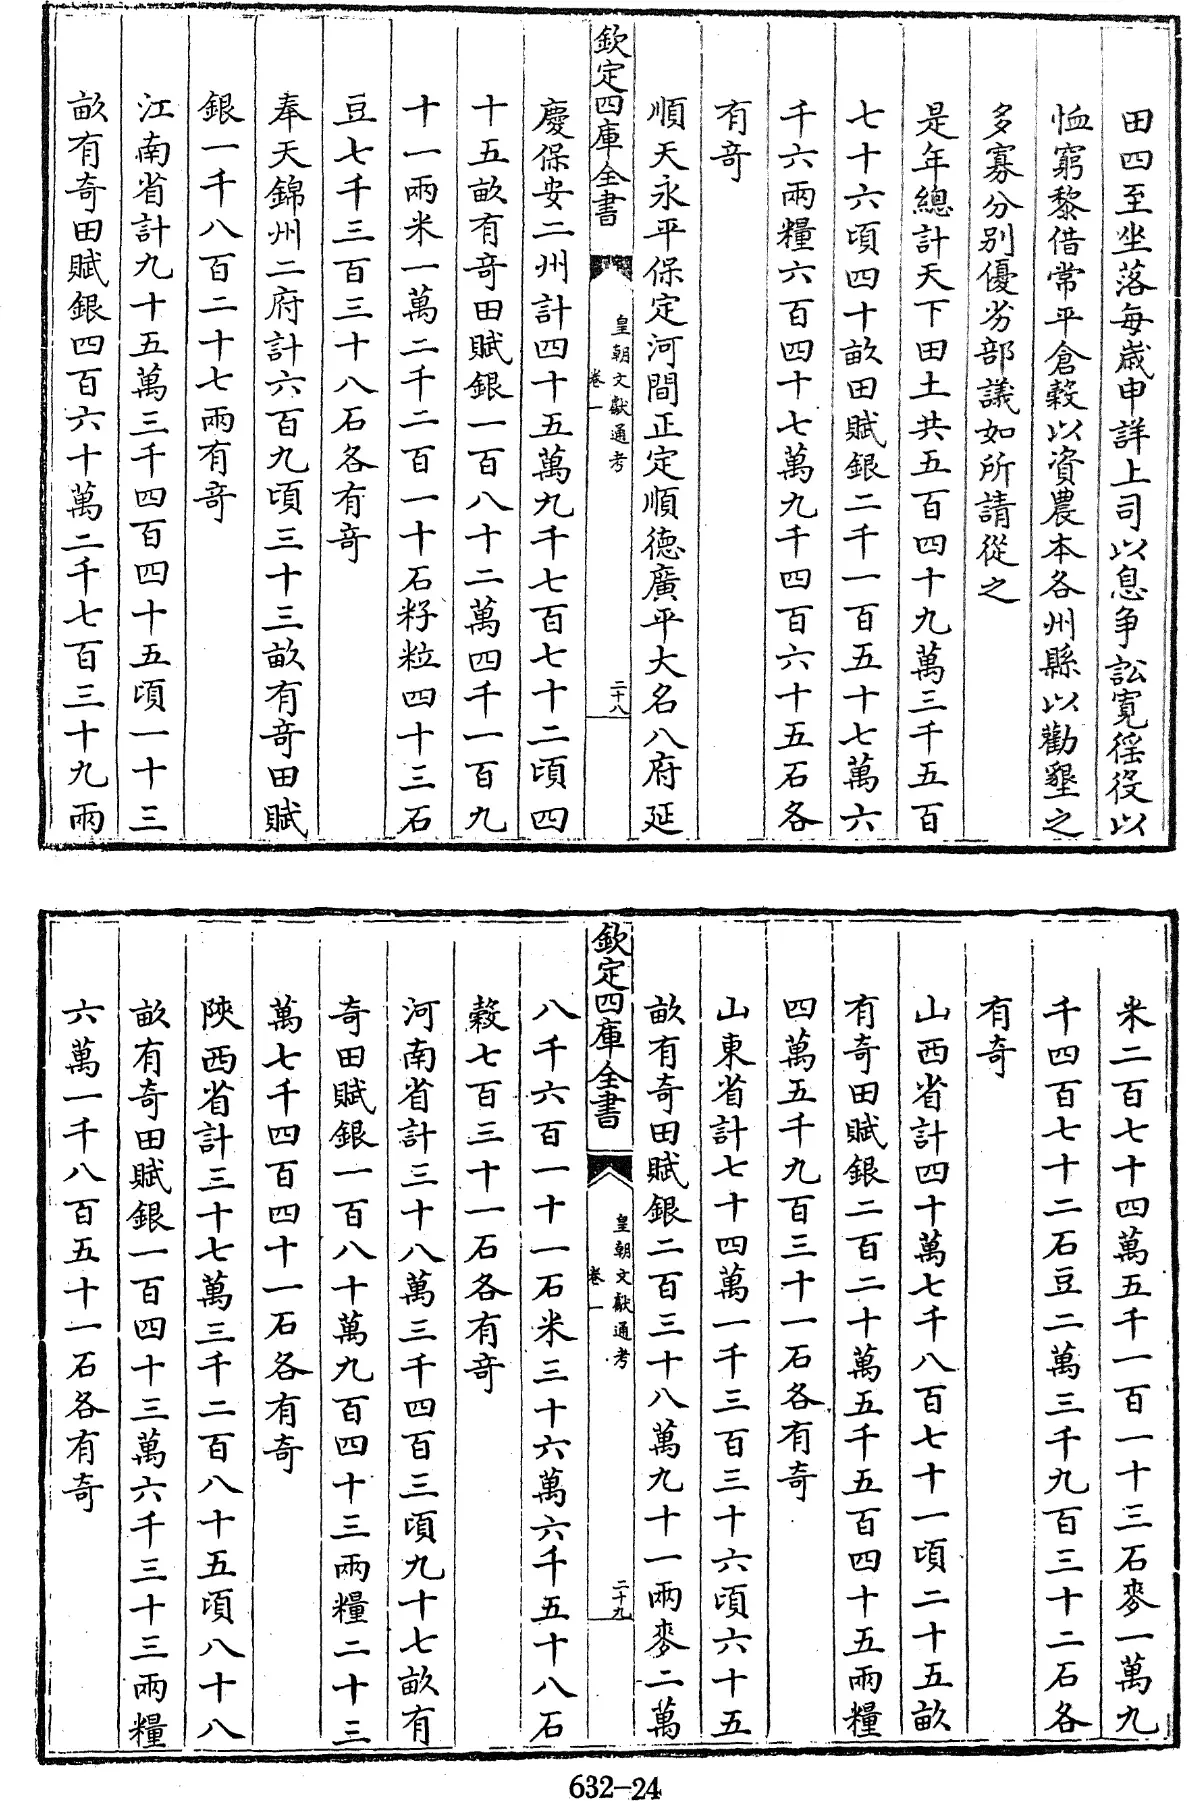 田四至坐落每歲申詳上司以息爭訟寛徭役以
恤窮黎借常平倉穀以資農本各州縣以勸墾之
多寡分别優劣部議如所請從之
是年總計天下田土共五百四十九萬三千五百
七十六頃四十畝田賦銀二千一百五十七萬六
千六兩糧六百四十七萬九千四百六十五石各
有竒
順天永平保定河間正定順德廣平大名八府延
欽定四庫全書
皇朝文獻通考
卷一
二十八
慶保安二州計四十五萬九千七百七十二頃四
十五畝有竒田賦銀一百八十二萬四千一百九
十一兩米一萬二千二百一十石籽粒四十三石
豆七千三百三十八石各有竒
奉天錦州二府計六百九頃三十三畝有竒田賦
銀一千八百二十七兩有竒
江南省計九十五萬三千四百四十五頃一十三
畝有奇田賦銀四百六十萬二千七百三十九兩
米二百七十四萬五千一百一十三石麥一萬九
千四百七十二石豆二萬三千九百三十二石各
有奇
山西省計四十萬七千八百七十一頃二十五畝
有奇田賦銀二百二十萬五千五百四十五兩糧
四萬五千九百三十一石各有奇
山東省計七十四萬一千三百三十六頃六十五
畝有奇田賦銀二百三十八萬九十一兩麥二萬
欽定四庫全書
皇朝文獻通考
卷一
二十九
八千六百一十一石米三十六萬六千五十八石
穀七百三十一石各有竒
河南省計三十八萬三千四百三頃九十七畝有
奇田賦銀一百八十萬九百四十三兩糧二十三
萬七千四百四十一石各有奇
陜西省計三十七萬三千二百八十五頃八十八
畝有奇田賦銀一百四十三萬六千三十三兩糧
六萬一千八百五十一石各有奇
632-24